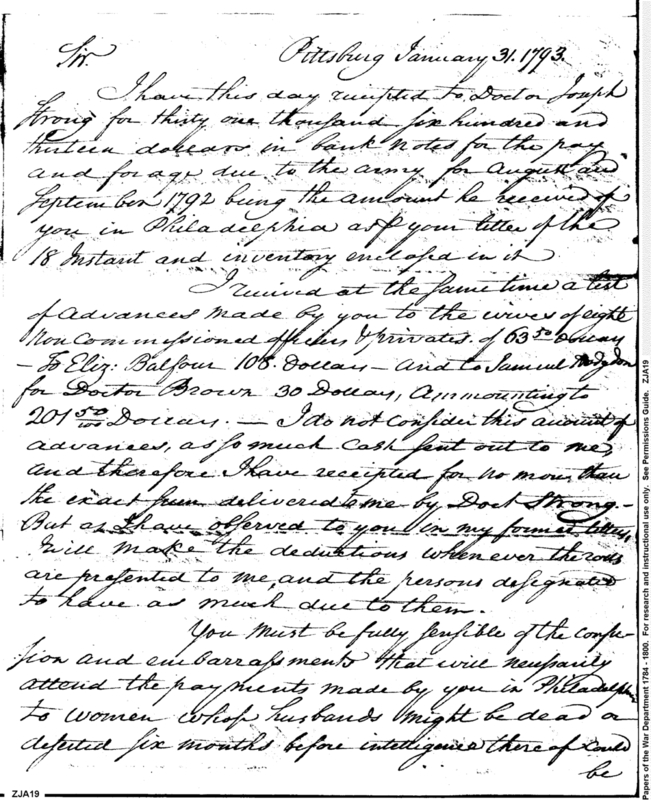 Sir. Pittsburg January 31. 1793.
I have this day recipted to Doctor Joseph
Strong for thirty one thousand six hundred and
thirteen dollars in bank notes for the pay
and forage due to the army for August and
September 1792 being the amount he received of
you in Philadelphia as your letter of the
18 Instant and inventory enclosed in it
I received at the same time a list
of Advances made by you to the wives of eight
Non Commissioned officers & privates of 63 50 Dollars
- To Eliz: Balfour 108. Dollars - and to Samuel Hodgdon
for Doctor Brown 30 Dollars, Ammounting to
201 50/100 Dollars. - I do not consider this amount of
advances, as so much Cash sent out to me,
and therefore I have receipted for no more than
the exact sum delivered to me by Doct Strong -
But as I have observed to you in my former letters,
will make the deductions whenever the rolls
are presented to me, and the persons designated
to have as much due to them.
You must be fully sensible of the confu-
sion and embarrassments that will neussarily
attend the payments made by you in Philadelphia
to women whose husbands might be dead or
deserted six months before intelligence thereof could
be
ZJA19
Papers of the War Department 1784 - 1800. For research and instructional use only. See Permissions Guide. ZJA19